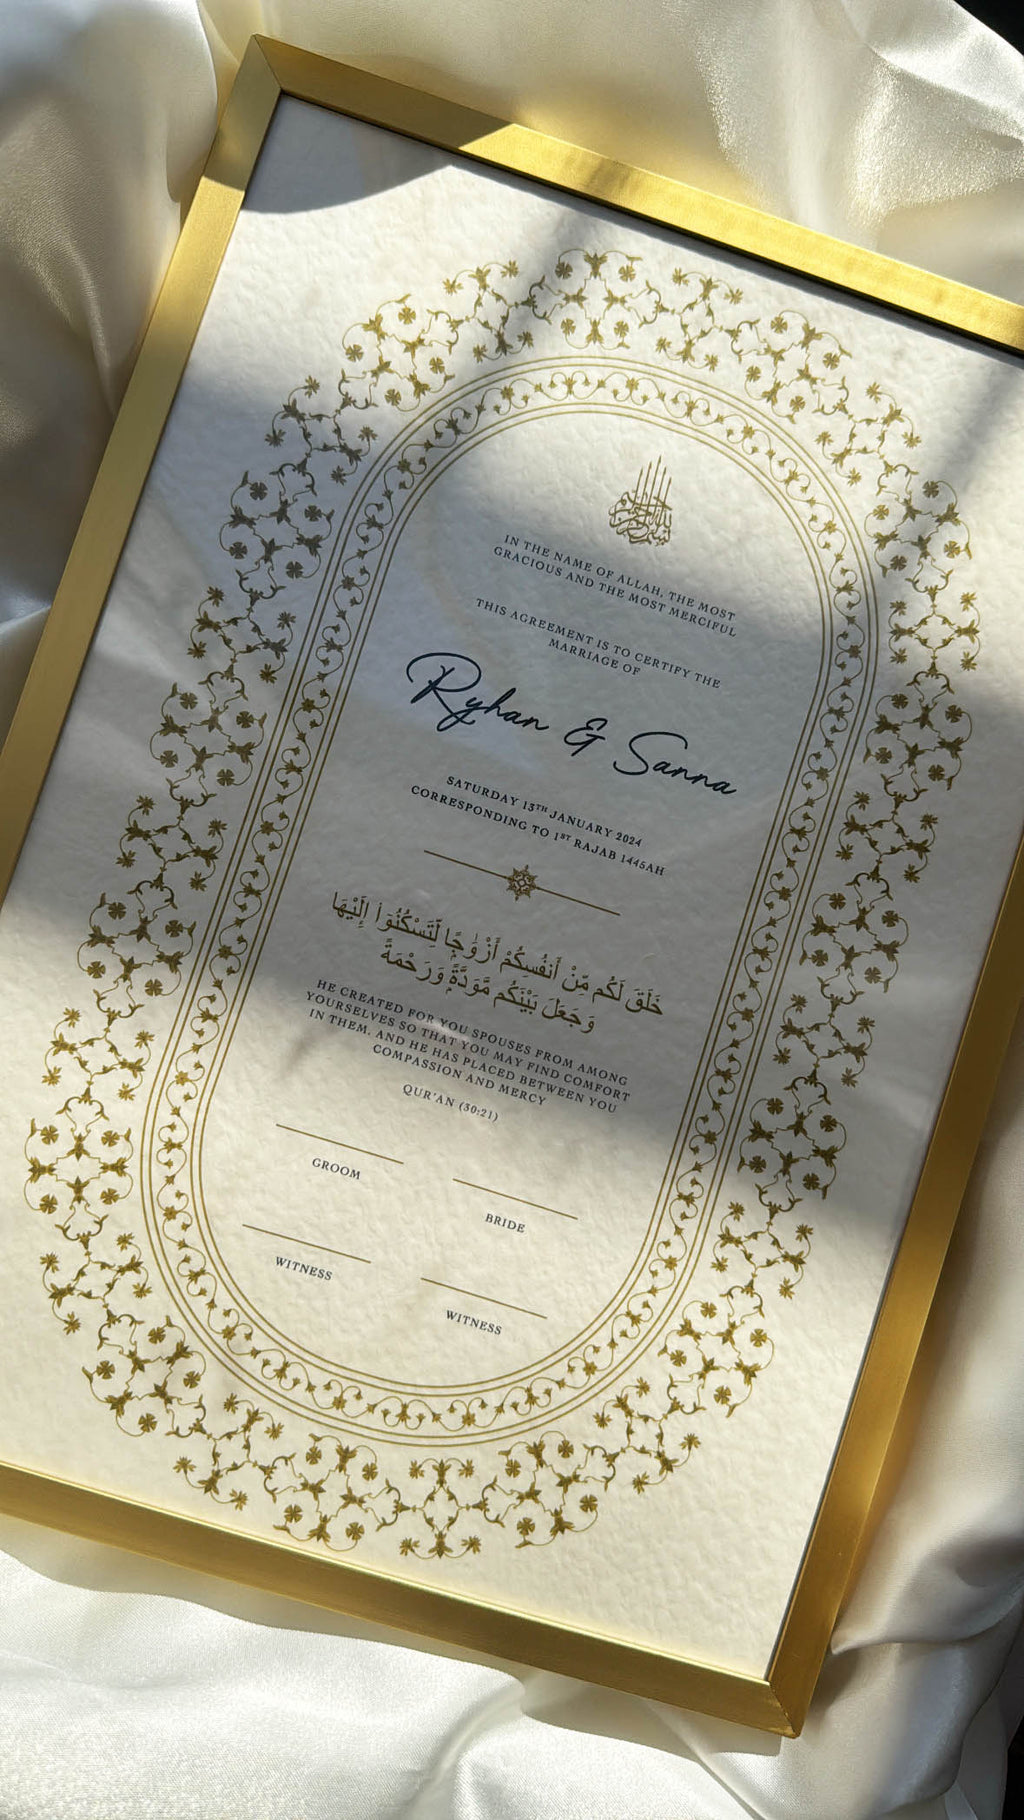 بسم الله الرحمن الرحيم
IN THE NAME OF ALLAH, THE MOST
GRACIOUS AND THE MOST MERCIFUL
THIS AGREEMENT IS TO CERTIFY THE
MARRIAGE OF
Ryhan & Sanna
SATURDAY 13TH JANUARY 2024
CORRESPONDING TO 1ST RAJAB 1445AH
خَلَقَ لَكُم مِّنْ أَنفُسِكُمْ أَزْوَٰجًا لِّتَسْكُنُوٓا۟ إِلَيْهَا
وَجَعَلَ بَيْنَكُم مَّوَدَّةً وَرَحْمَةً
HE CREATED FOR YOU SPOUSES FROM AMONG
YOURSELVES SO THAT YOU MAY FIND COMFORT
IN THEM. AND HE HAS PLACED BETWEEN YOU
COMPASSION AND MERCY
QUR'AN (30:21)
GROOM
BRIDE
WITNESS
WITNESS